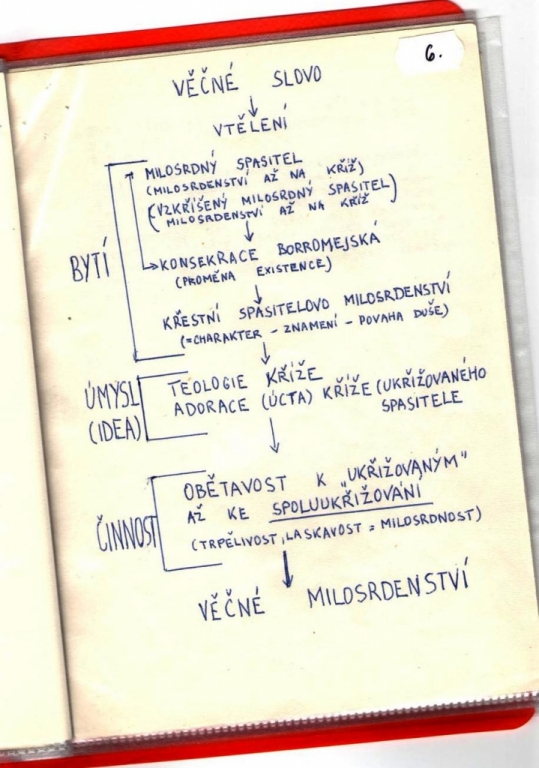 6.
VĚČNÉ SLOVO
VTĚLENÍ
MILOSRDNÝ SPASITEL
(MILOSRDENSTVÍ AŽ NA KŘÍŽ)
(VZKŘÍŠENÝ MILOSRDNÝ SPASITEL)
MILOSRDENSTVÍ AŽ NA KŘÍŽ
BYTÍ
KONSEKRACE BORROMEJSKÁ
(PROMĚNA EXISTENCE)
KŘESTNÍ SPASITELOVO MILOSRDENSTVÍ
(=CHARAKTER - ZNAMENÍ - POVAHA DUŠE)
ÚMYSL
(IDEA)
TEOLOGIE KŘÍŽE
ADORACE (ÚCTA) KŘÍŽE (UKŘIŽOVANÉHO
SPASITELE
ČINNOST
OBĚTAVOST K "UKŘIŽOVANÝM"
AŽ KE SPOLUUKŘIŽOVÁNÍ
(TRPĚLIVOST, LASKAVOST = MILOSRDNOST)
VĚČNÉ MILOSRDENSTVÍ